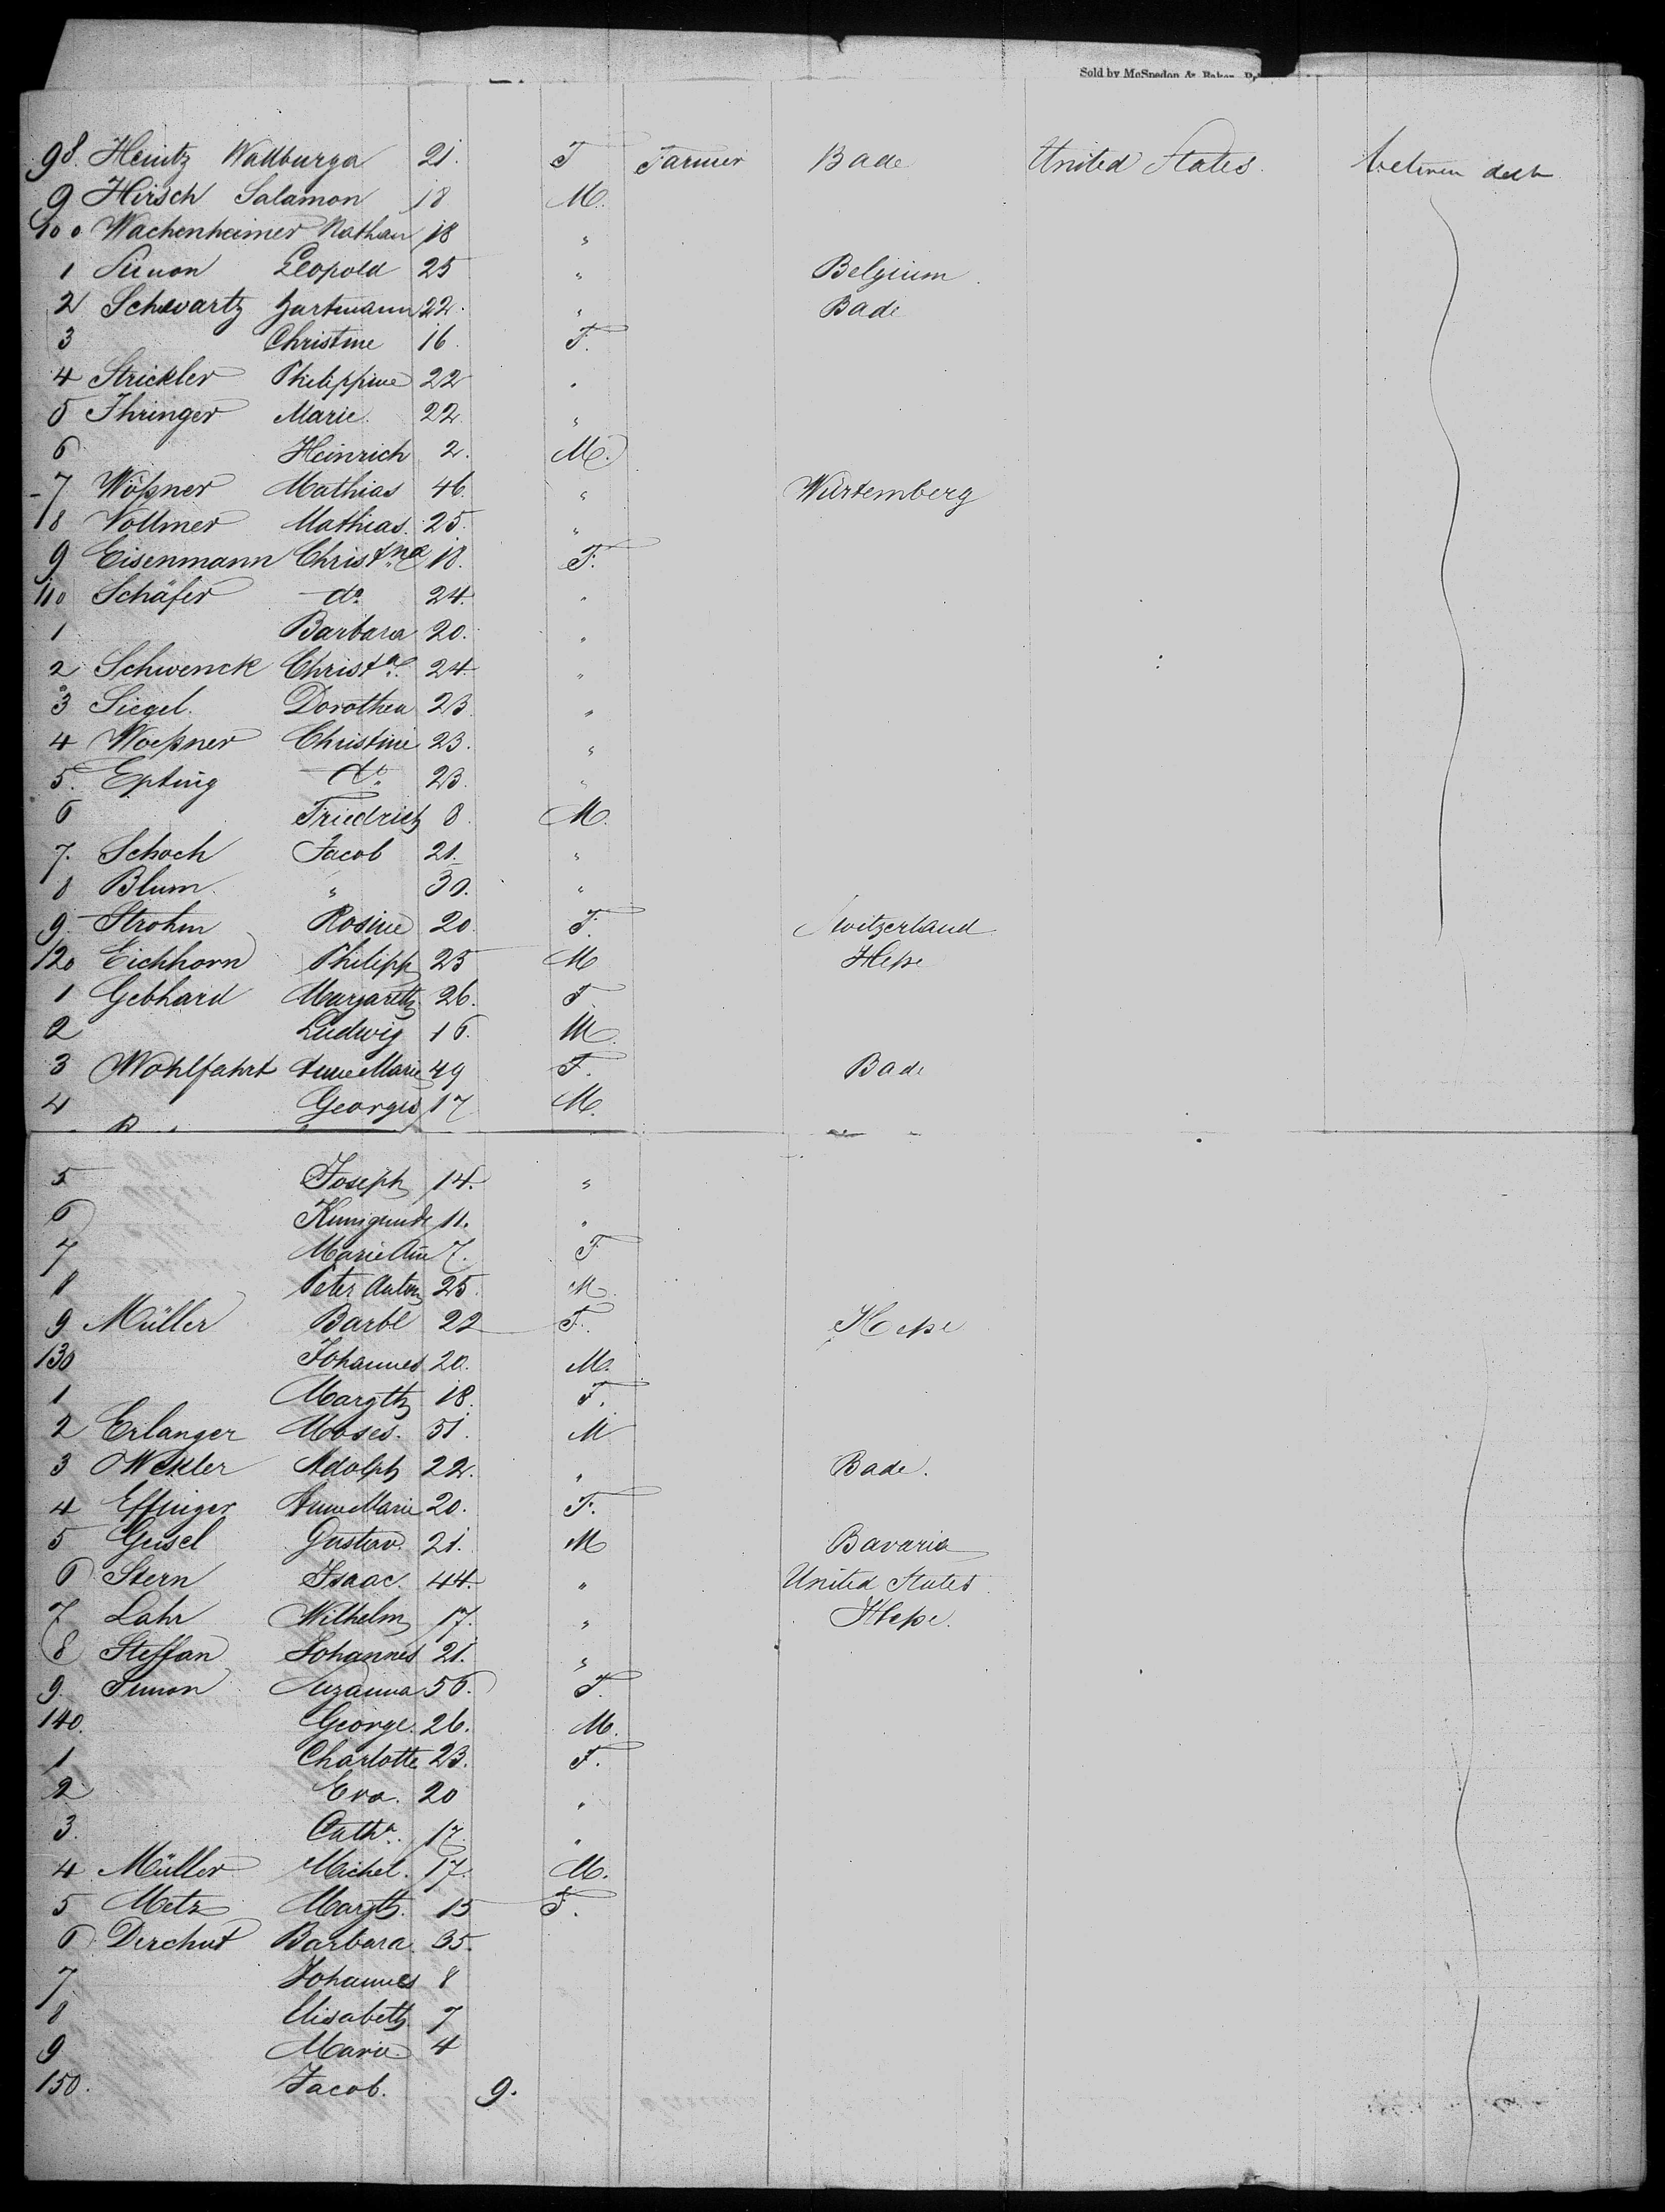 Sold by McSpedon & Baker
98. Heintz Wallburga 21. F Farmer Bade United States. between deck
9 Hirsch Salamon 18 M.
100 Wachenheimer Nathan 18 "
1 Simon Leopold 25 " Belgium
2 Schwartz Hartmann 22. " Bade
3 Christine 16. F.
4 Strickler Philippine 22 "
5 Ihringer Marie 22 "
6 Heinrich 2. M.
7 Wößner Mathias 46. " Würtemberg
8 Vollmer Mathias. 25. "
9 Eisenmann Christna 18. F.
110 Schäfer do 24. "
1 Barbara 20. "
2 Schwenck Christa. 24. "
3 Siegel. Dorothea 23 "
4 Woeßner Christine 23. "
5. Epting do 23. "
6 Friedrich 8. M.
7. Schoch Jacob 21. "
8 Blum. " 30. "
9. Strohm Rosine 20. F. Switzerland
120 Eichhorn Philipp 25 M Heße
1 Gebhard Margareth 26. F
2 Ludwig 16. M.
3 Wohlfahrt Anne Marie 49 F. Bade
4 Georges 17 M.
5 Joseph 14. "
6 Kunigunde 11. "
7 Marie Ann 7. F
8 Peter Anton 25. M.
9 Müller Barbe 22 F. Heße
130 Johannes 20. M.
1 Margth 18. F.
2 Erlanger Moses. 51. M
3 Wekler Adolph 22. " Bade.
4 Effinger Anne Marie 20. F.
5 Geisel Gustav. 21. M Bavaria
6 Stern Isaac. 44. " United States
7 Lahr Wilhelm 17. " Heße.
8 Steffan Johannes 21. "
9. Simon Suzanna 56. F.
140. George. 26. M.
1 Charlotte 23. F.
2 Eva. 20 "
3. Catha. 17. "
4 Müller Michel. 17. M.
5 Metz Margth. 15 F.
6 Derchut Barbara. 35.
7 Johannes 8
8 Elisabeth 7
9 Marie 4
150. Jacob. 9.